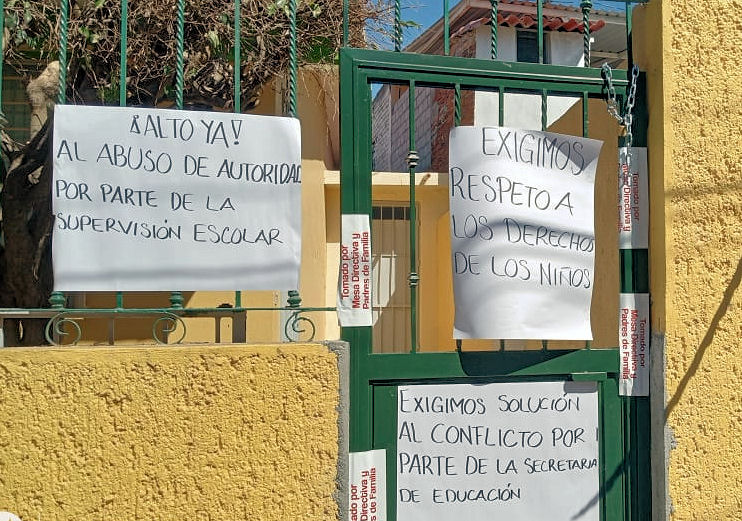 ¡ALTO YA!
AL ABUSO DE AUTORIDAD
POR PARTE DE LA
SUPERVISIÓN ESCOLAR
EXIGIMOS
RESPETO A
LOS DERECHOS
DE LOS NIÑOS
Tomado por
Mesa Directiva y
Padres de Familia
Tomado por
Mesa Directiva y
Padres de Familia
Tomado por
Mesa Directiva y
Padres de Familia
EXIGIMOS SOLUCIÓN
AL CONFLICTO POR
PARTE DE LA SECRETARIA
DE EDUCACIÓN
por
Directiva y
de Familia